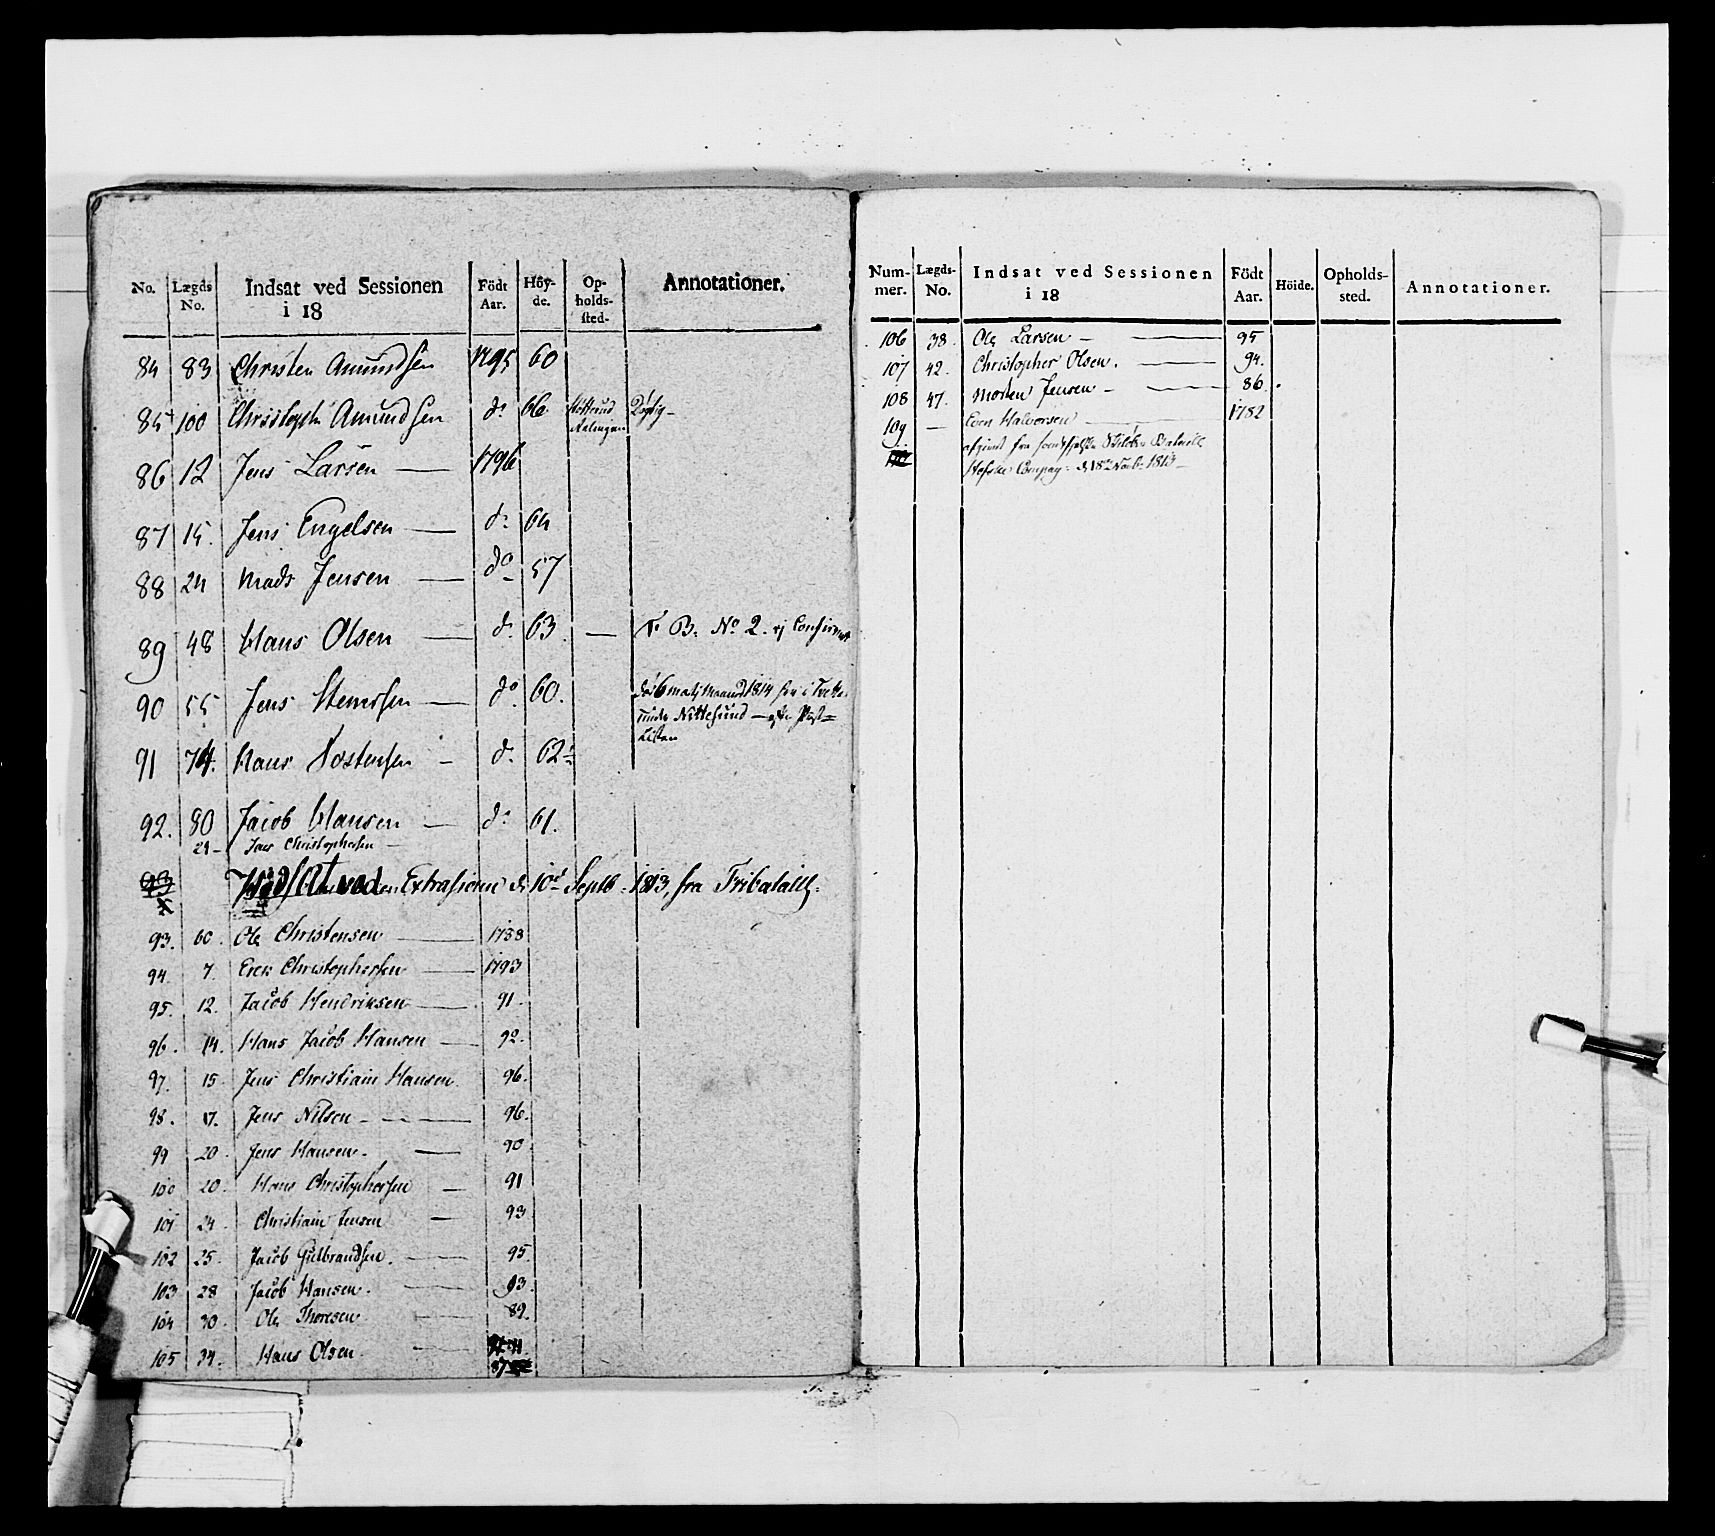 No. Lægds No. Indsat ved Sessionen i 18 Födt Aar. Höy-de. Op-holds-sted. Annotationer.
84 83 Christen Amundsen 1795 60
85 100 Christoph Amundsen do 66
86 12 Jens Larsen — 1796
87 15. Jens Engelsen — do 64
88 24 Mads Jensen — do 57
89 48 Hans Olsen — do 63 — T. B. No 2.
90 55 Jens — do 60. 1814
under Nittesund —
Listen
91 74. Hans Tostensen — do 62
92. 80 Jacob Hansen — do 61.
21 — Christophersen —
93
Indsat ved Extrasession d. 10d Septb. 1813, fra
93. 60. Ole Christensen — 1788
94. 7. Erik Christophersen — 1793
95. 12. Jacob Hendriksen — 91.
96. 14. Hans Jacob Hansen — 92.
97. 15. Jens Christian Hansen 96.
98. 17. Jens Nilsen — 96.
99 20. Jens Hansen. — 90.
100 20. Hans Christophersen — 91
101 24. Christian Jensen — 93
102 25. Jacob Gulbrandsen. — 95.
103 28 Jacob Hansen. — 93.
104 30. Ole Thoresen — 89.
105 34. Hans Olsen —
87
Num-mer. Lægds-No. Indsat ved Sessionen i 18 Födt Aar. Höide. Opholds-sted. Annotationer.
106 38. Ole Larsen — 95
107 42. Christopher Olsen. — 94.
108 47. Morten Jensen — 86.
109 — Even Halvorsen — 1782
afgivet fra
Compag: d. 18de Novbr 1813 —